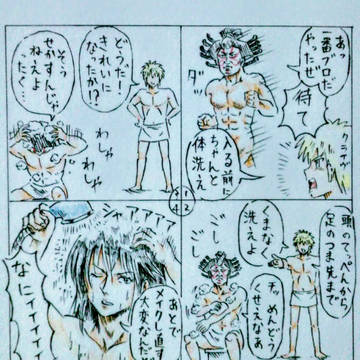 あっ
一番ブロだ
やったぜ
ダ
待て
入る前に
ちゃんと
体洗え
頭のてっぺんから
足のつま先まで
くまなく
洗えよ
チッ めんどう
くせえなあ
ごし
ごし
どうだ!
きれいに
なったか!?
そう
せかすんじゃ
ねえよ
ったく
わしゃ
わしゃ
3 1
4 2
あとで
メイクし直す
大変なんだ
なにィィィィ